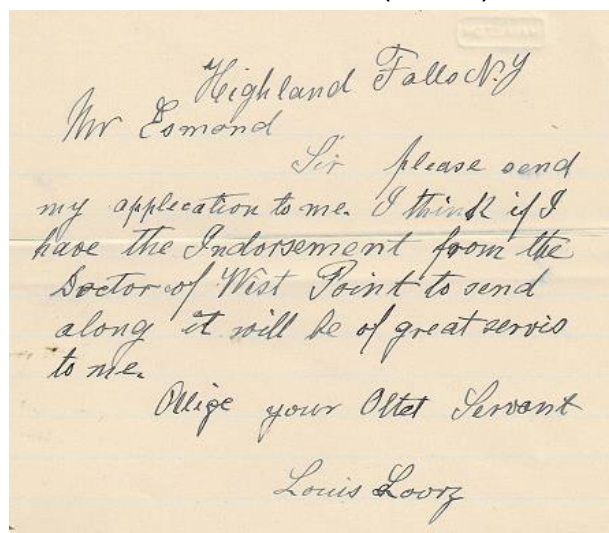 Highland Falls N.Y
Mr Esmond
Sir please send
my application to me. I think if I
have the Indorsement from the
Doctor of West Point to send
along it will be of great servis
to me.
Oblige your Obtet Servant
Louis